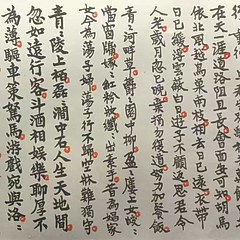 在天涯道路阻且長會面安可知胡馬
依北風越鳥巢南枝相去日已遠衣帶
日已緩浮雲蔽白日遊子不顧返思君令
人老歲月忽已晚棄捐勿復道努力加餐飯
青〻河畔草鬱〻園中柳盈〻樓上女皎〻
當窗牖娥〻紅粉妝纖〻出素手昔為倡家
女今為蕩子婦蕩子行不歸空牀難獨守
青〻陵上柏磊〻澗中石人生天地間
忽如遠行客斗酒相娛樂聊厚不
為薄驅車策駑馬遊戲宛與洛〻